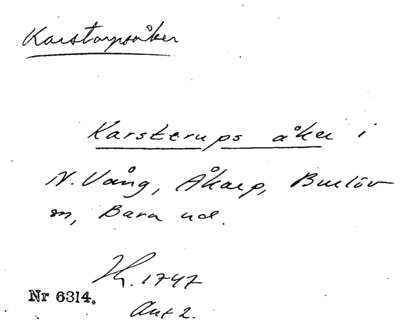 Karstorpsåker
Karsterups åker i
N. Vång, Åkarp, Burlöv
sn, Bara hd.
Lh. 1747
Akt 2.
Nr 6314.